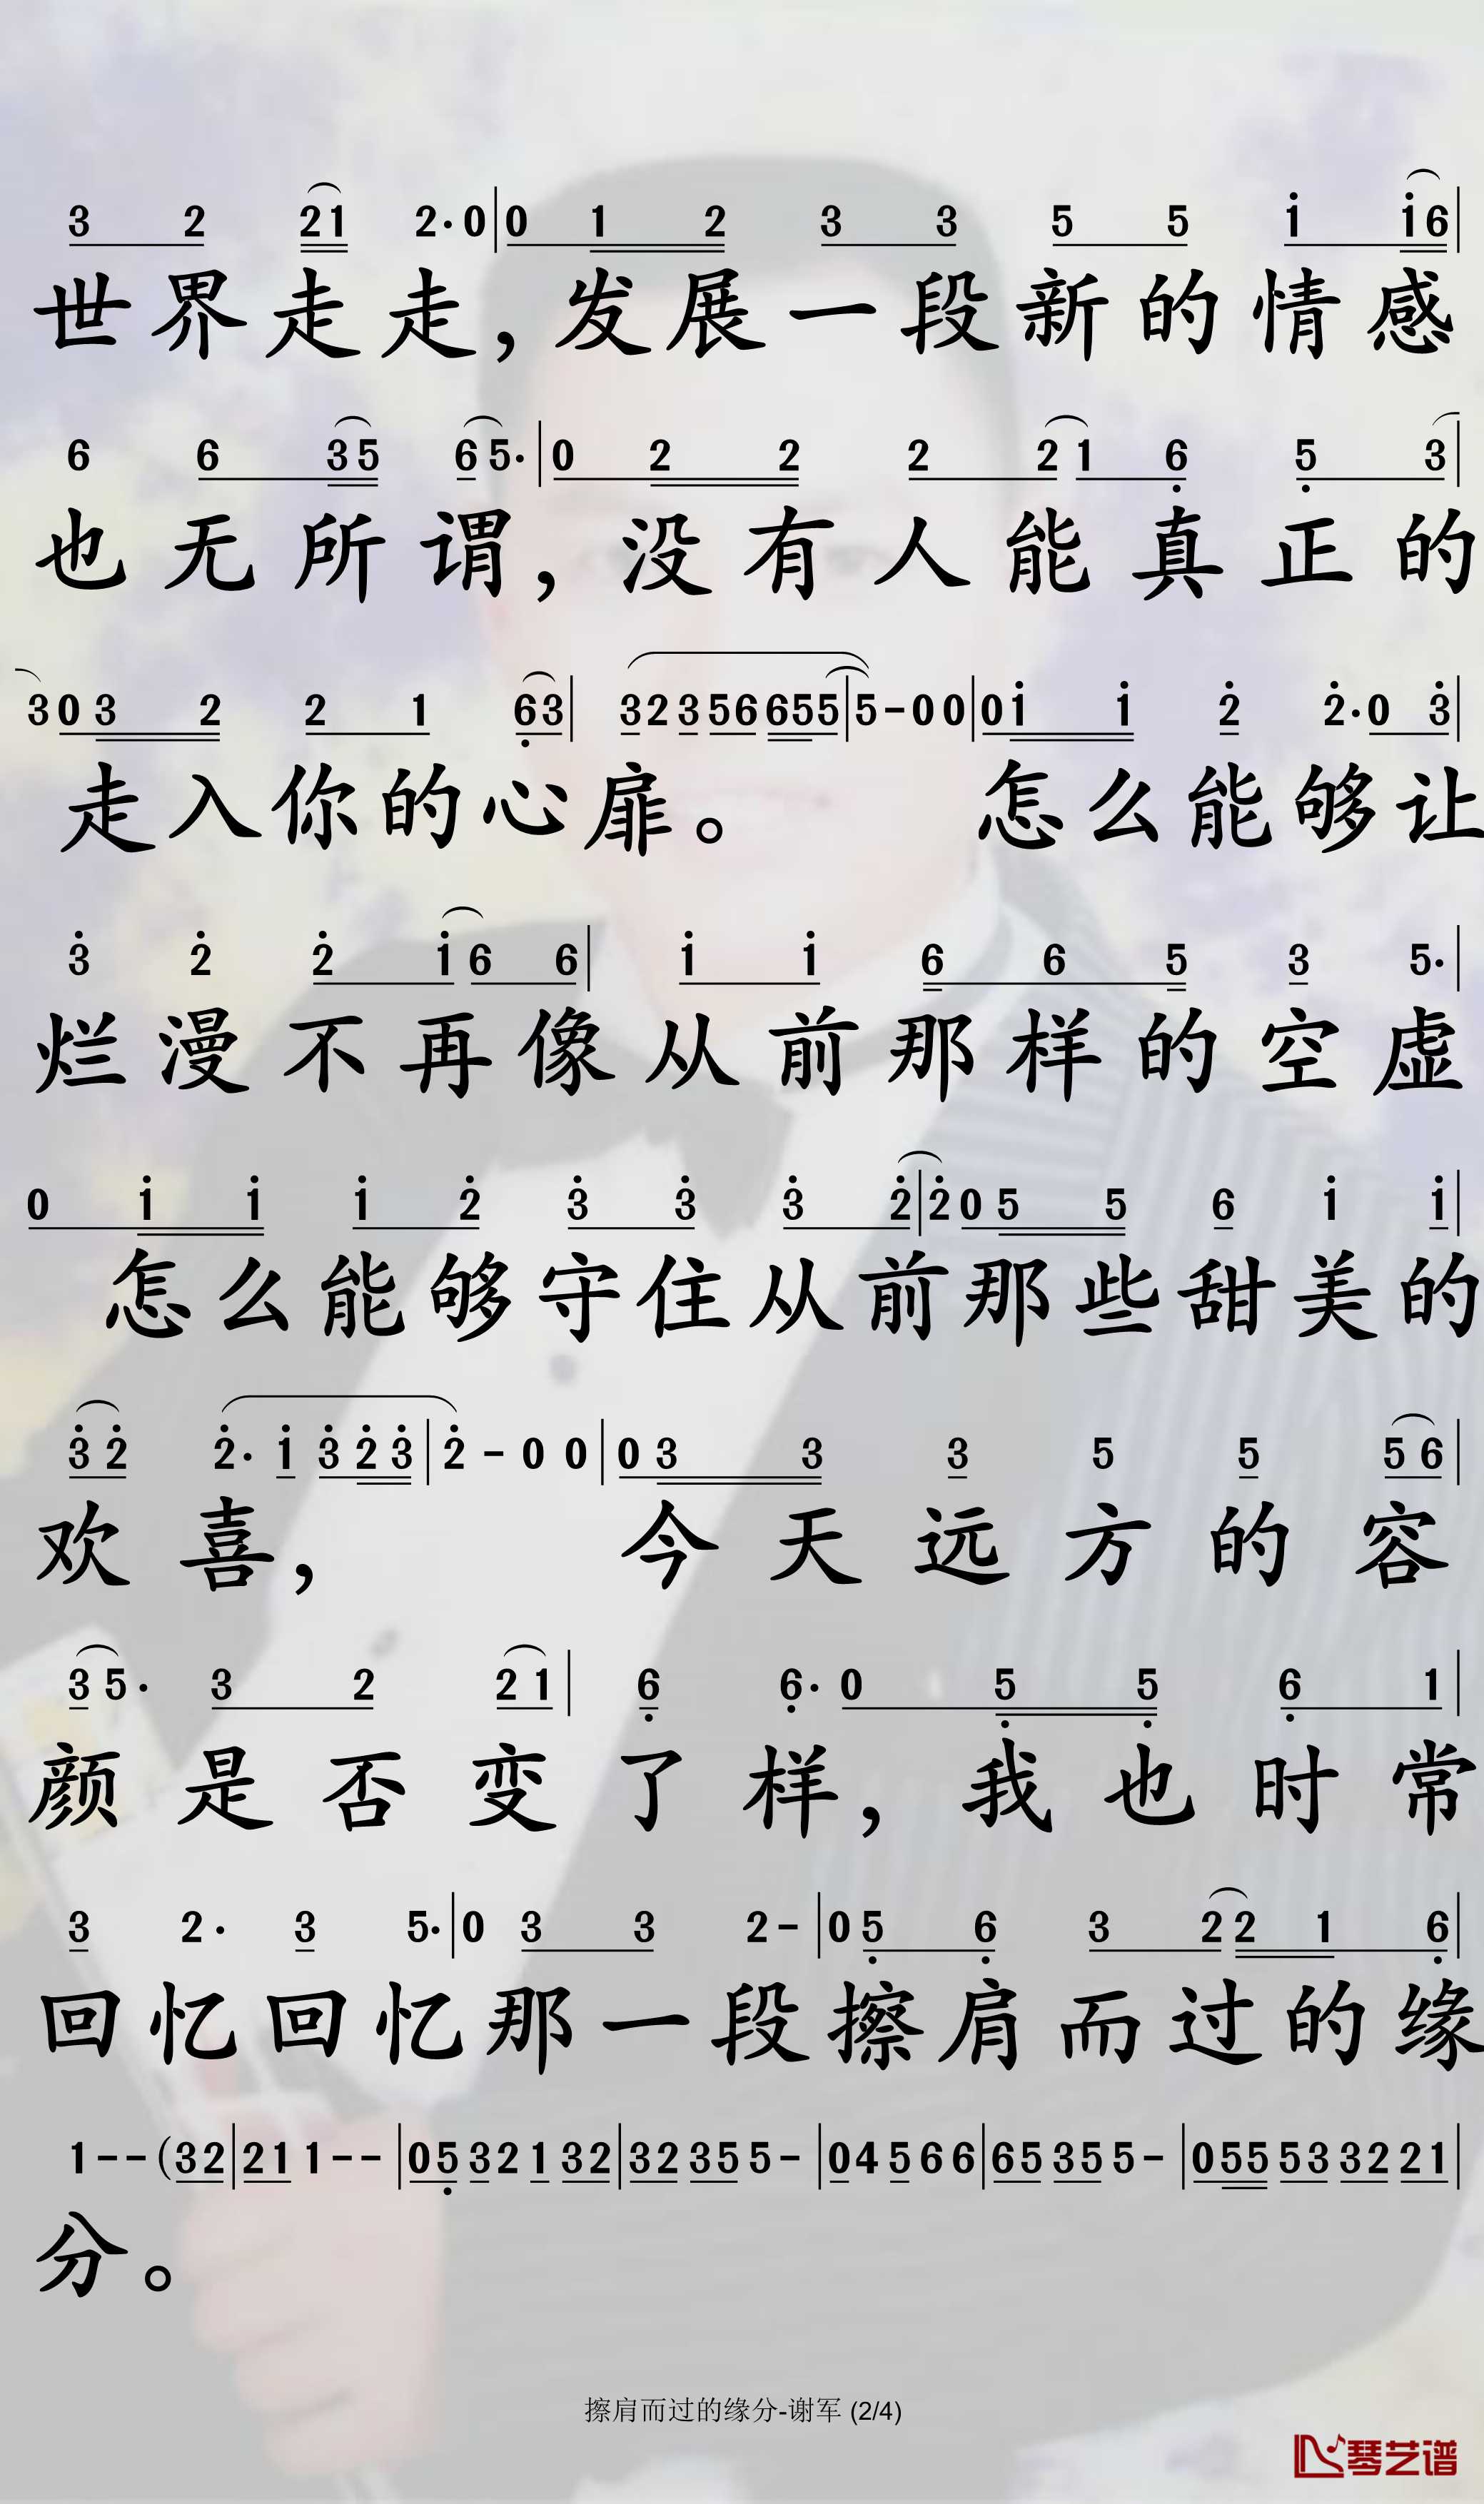 3 2 21 2·0|0 1 2 3 3 5 5 i i6|
世界走走，发展一段新的情感
6 6 35 65·|0 2 2 2 21 6 5 3|
也无所谓，没有人能真正的
30 3 2 2 1 63| 323565655|5-00|0i i 2 2·0 3|
走入你的心扉。 怎么能够让
3 2 2 i6 6| i i 6 6 5 3 5·|
烂漫不再像从前那样的空虚
0 i i i 2 3 3 3 2|2 0 5 5 6 i i|
怎么能够守住从前那些甜美的
3 2 2· i 3 2 3|2 - 0 0|0 3 3 3 5 5 5 6|
欢喜， 今天远方的容
3 5· 3 2 2 1| 6 6· 0 5 5 6 1|
颜是否变了样，我也时常
3 2· 3 5·|0 3 3 2-|0 5 6 3 2 2 1 6|
回忆回忆那一段擦肩而过的缘
1--(32|21 1--|05 32 1 32|32 35 5-|04 5 6 6|65 35 5-|055 53 32 21|
分。
擦肩而过的缘分-谢军 (2/4)
琴艺谱